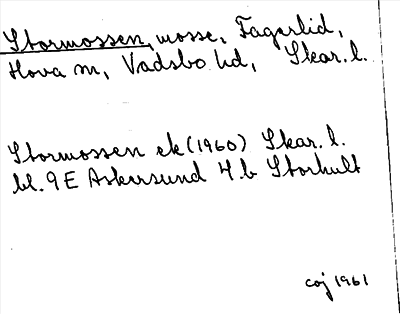 Stormossen, mosse, Fagerlid,
Hova sn, Vadsbo hd, Skar. l.
Stormossen ek (1960) Skar. l.
bl. 9 E Askersund 4 b Storhult
coj 1961